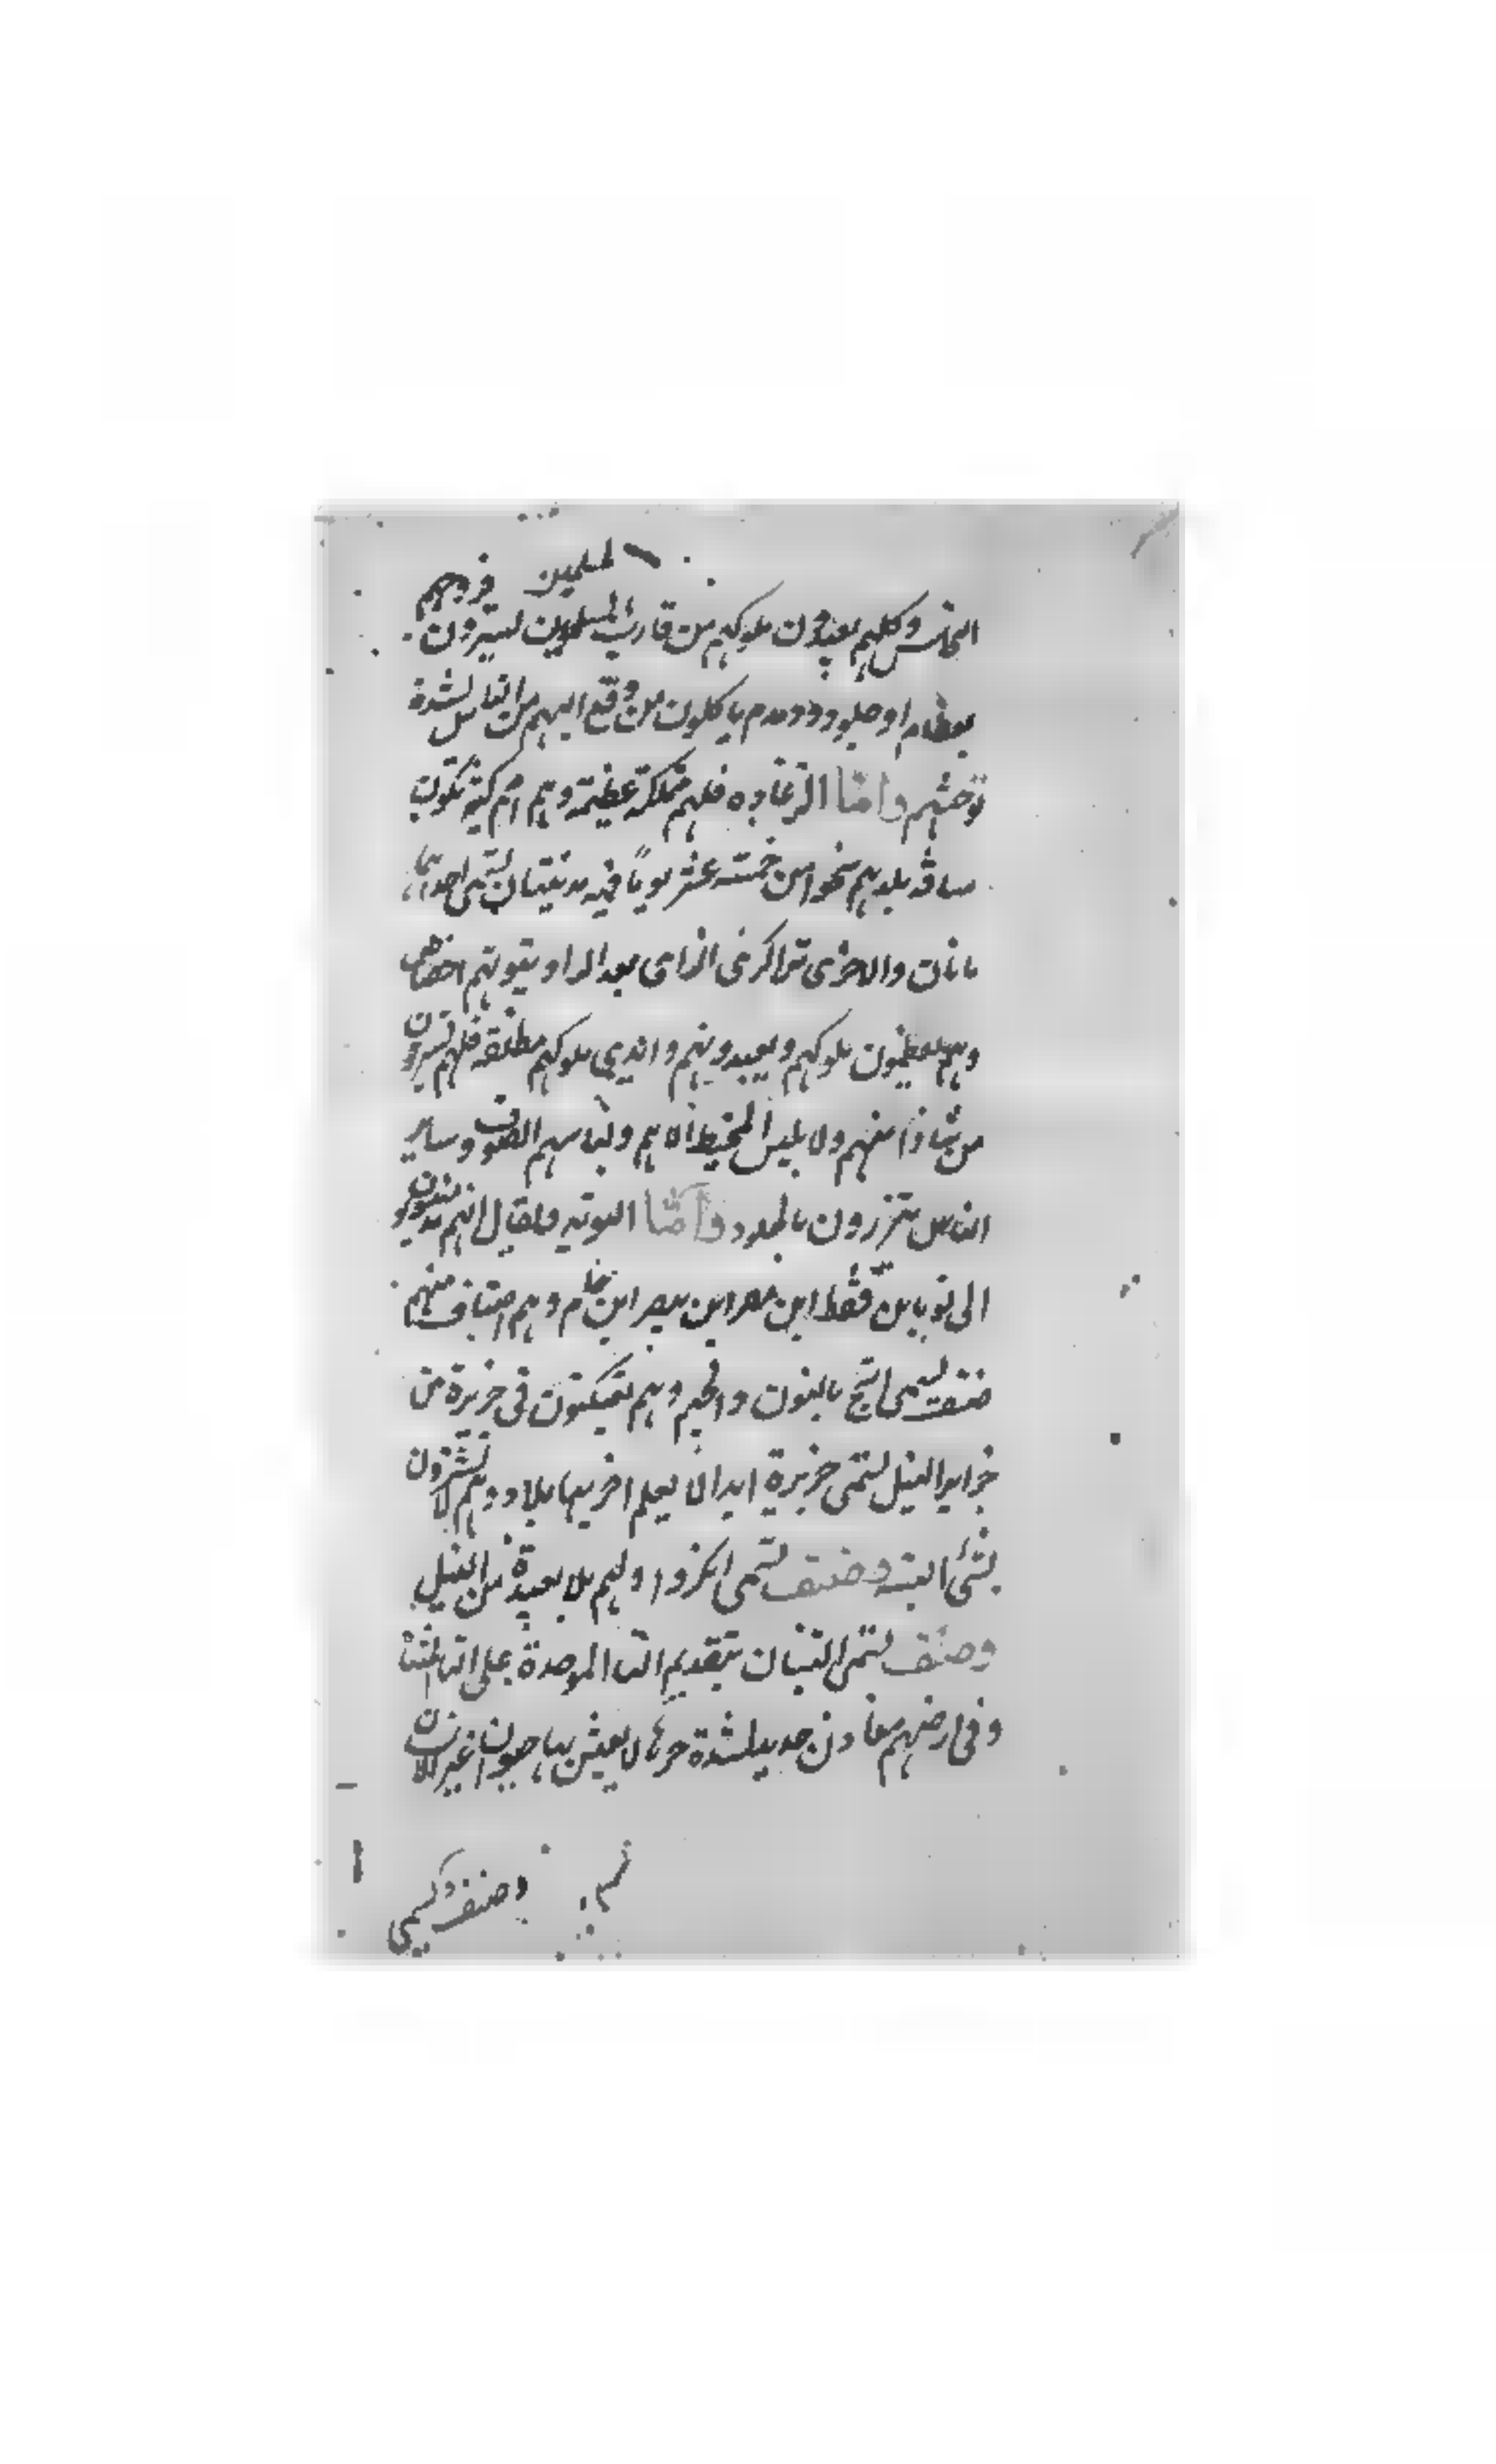 المسلمين فروجهم
النحاس وكلهم يعبدون ملوكهم من قارب المسلمين يسترون
بعظام او جلود ودمدم ياكلون من وقع اليهم من الناس لشدة
توحشهم واما الزغاوه فلهم مملكة عظيمة وهم امم كثير تكون
مسافة بلدهم نحوا من خمسة عشر يوما فيه مدينتان تسمى احداهما
مانان والاخرى تراكرنى الزاى بعد الرا وبيوتهم اخصاص
وهم يعظمون ملوكهم ويعبدونهم وايدي ملوكهم مطلقه فلهم
من شاؤا منهم ولا يلبس المخيط الا هم ولباسهم الصوف وساير
الناس يتزرون بالجلود واما النوبه فيقال انهم ينسبون
الى نوبا بن قفط ابن مصر ابن بيصر ابن حام وهم اصناف منهم
صنف يسمى انج بالنون والجيم وهم يسكنون فى جزيرة من
جزاير النيل تسمى جزيرة ابدا لا يعلم اخريها بلاد وهم لا
بشئ البته وصنف تسمى اكرنوا ولهم بلا بعيدة من النيل
وصنف تسمى التبنان بتقديم البا الموحدة على التا المثناة
وفى ارضهم معادن حديد لشدة حرها لا يعيش بها حيوان غير الانسان
وصنف يسمى